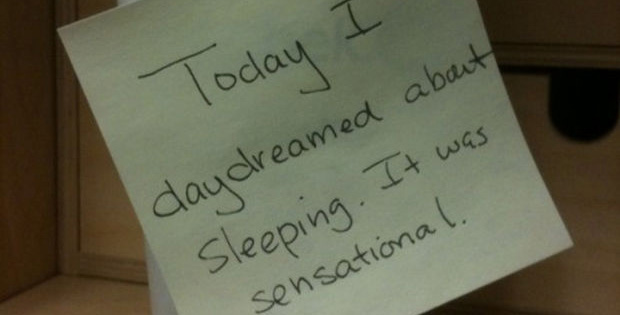 Today I
daydreamed about
sleeping. It was
sensational.